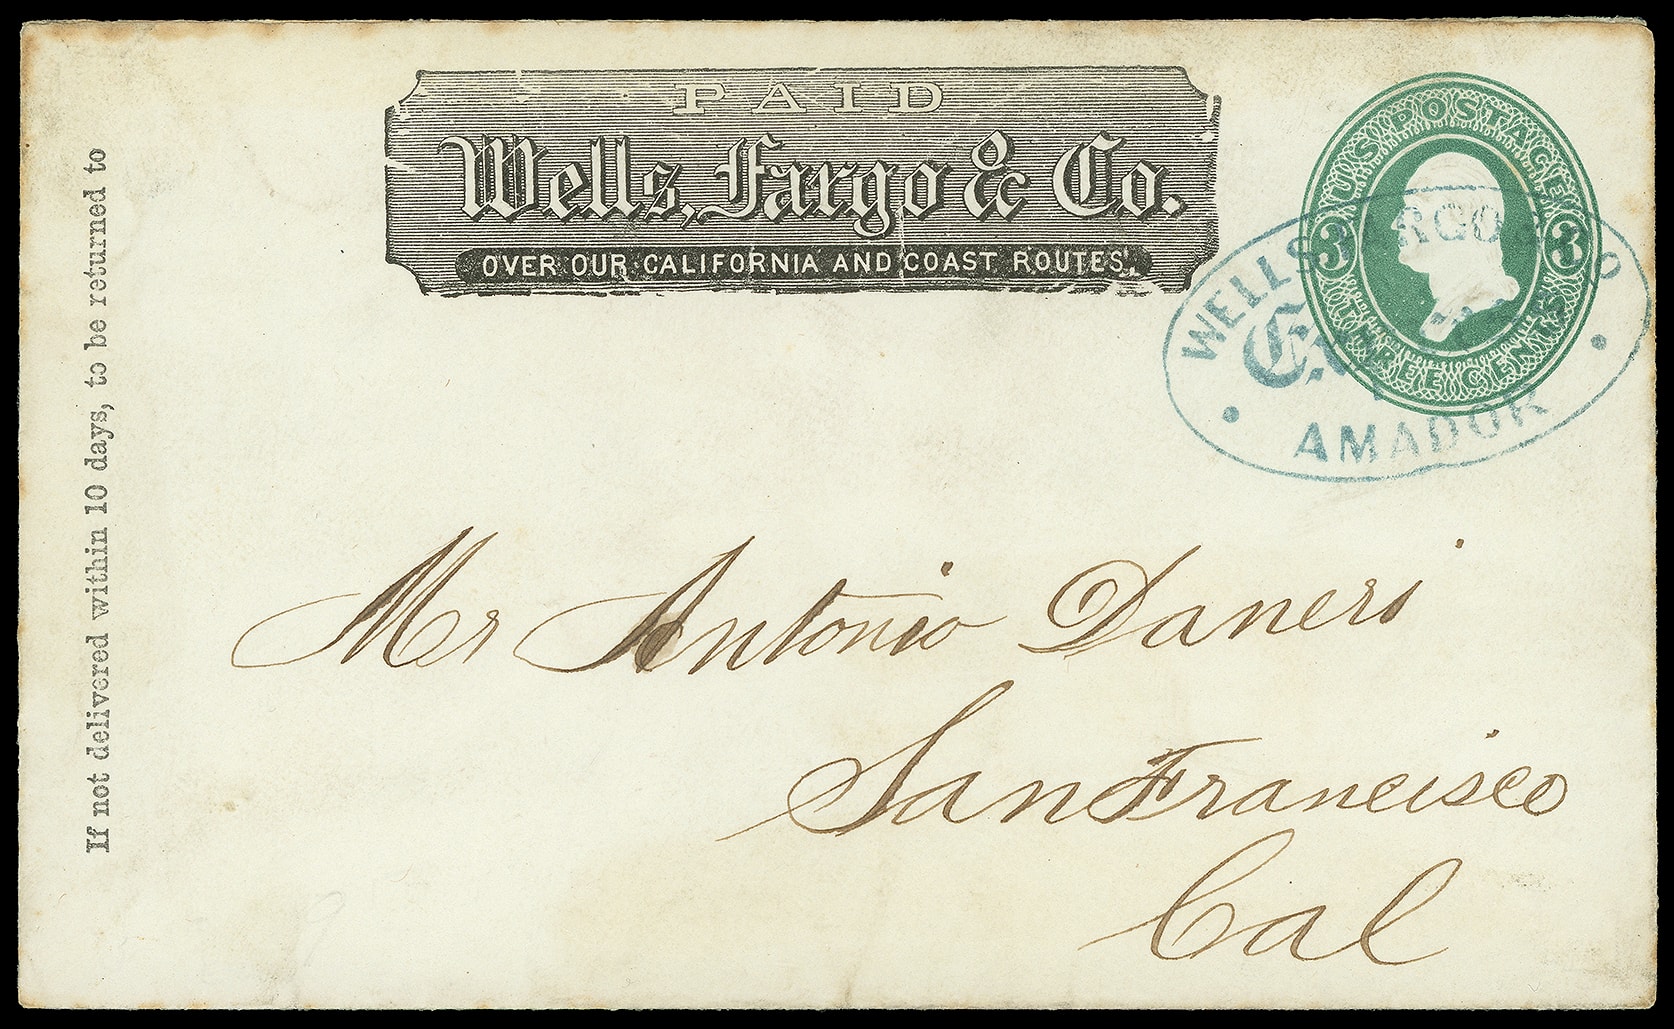 PAID
Wells, Fargo & Co.
OVER OUR CALIFORNIA AND COAST ROUTES.
U.S. POSTAGE
3 3
THREE CENTS
WELLS
AMADOR
If not delivered within 10 days, to be returned to
Mr Antonio Daneri
San Francisco
Cal